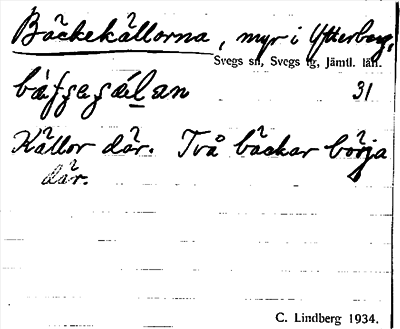 Bäckekällorna, myr i Ytterberg,
Svegs sn, Svegs tg, Jämtl. län.
31
Källor där. Två bäckar börja
där.
C. Lindberg 1934.